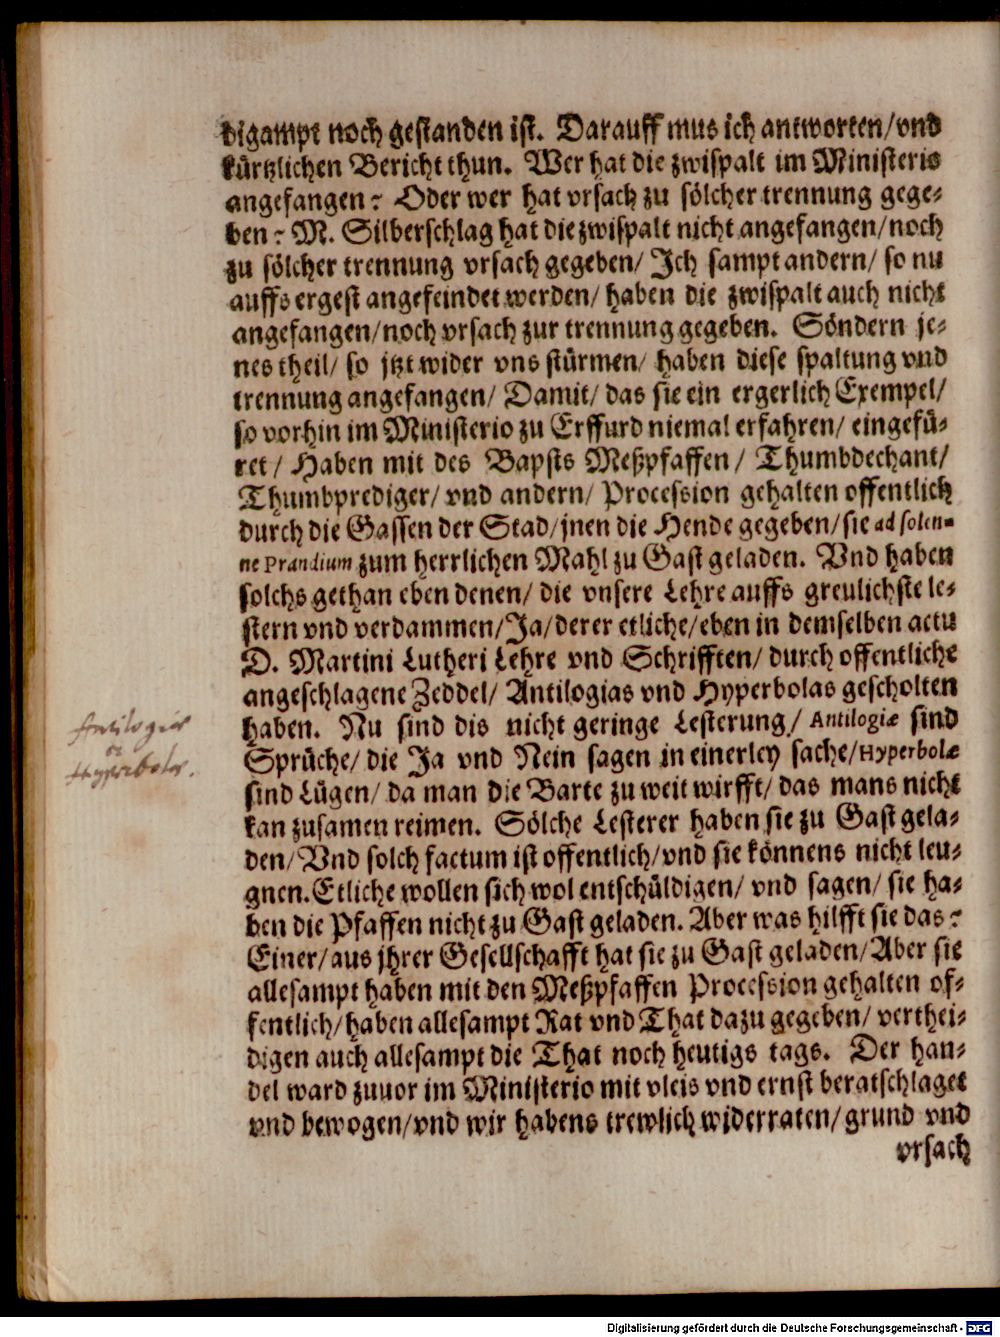 digampt noch gestanden ist. Darauff mus ich antworten/vnd
kürtzlichen Bericht thun. Wer hat die zwispalt im Ministerio
angefangen? Oder wer hat vrsach zu sölcher trennung gege-
ben? M. Silberschlag hat die zwispalt nicht angefangen/noch
zu sölcher trennung vrsach gegeben/ Ich sampt andern/ so nu
auffs ergest angefeindet werden/ haben die zwispalt auch nicht
angefangen/noch vrsach zur trennung gegeben. Söndern je-
nes theil/ so jtzt wider vns stürmen/ haben diese spaltung vnd
trennung angefangen/ Damit/ das sie ein ergerlich Exempel/
so vorhin im Ministerio zu Erffurd niemal erfahren/ eingefü-
ret/ Haben mit des Bapsts Meßpfaffen/ Thumbdechant/
Thumbprediger/ vnd andern/ Procession gehalten offentlich
durch die Gassen der Stad/jnen die Hende gegeben/sie ad solen-
ne Prandium zum herrlichen Mahl zu Gast geladen. Vnd haben
solchs gethan eben denen/ die vnsere Lehre auffs greulichste le-
stern vnd verdammen/Ja/derer etliche/eben in demselben actu
D. Martini Lutheri Lehre vnd Schrifften/ durch offentliche
angeschlagene Zeddel/ Antilogias vnd Hyperbolas gescholten
haben. Nu sind dis nicht geringe Lesterung/ Antilogiæ sind
Sprüche/ die Ja vnd Nein sagen in einerley sache/Hyperbolæ
sind Lügen/ da man die Barte zu weit wirfft/ das mans nicht
kan zusamen reimen. Sölche Lesterer haben sie zu Gast gela-
den/Vnd solch factum ist offentlich/vnd sie könnens nicht leu-
gnen. Etliche wollen sich wol entschüldigen/ vnd sagen/ sie ha-
ben die Pfaffen nicht zu Gast geladen. Aber was hilfft sie das?
Einer/aus jhrer Gesellschafft hat sie zu Gast geladen/Aber sie
allesampt haben mit den Meßpfaffen Procession gehalten of-
fentlich/haben allesampt Rat vnd That dazu gegeben/ verthei-
digen auch allesampt die That noch heutigs tags. Der han-
del ward zuuor im Ministerio mit vleis vnd ernst beratschlaget
vnd bewogen/vnd wir habens trewlich widerraten/grund vnd
vrsach
Antilogiæ
Hyperbolæ.
Digitalisierung gefördert durch die Deutsche Forschungsgemeinschaft - DFG